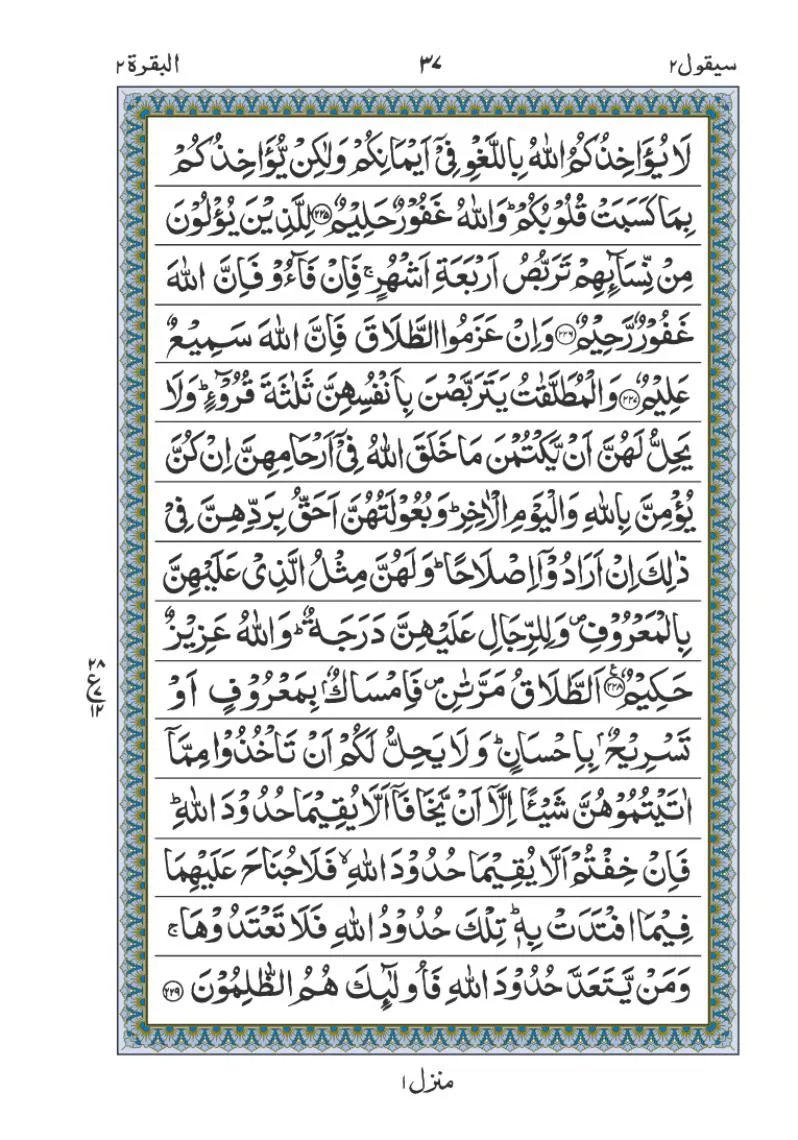 سیقول ۲
۳۷
البقرة ۲
لَا يُؤَاخِذُكُمُ اللّٰهُ بِاللَّغْوِ فِىْٓ اَيْمَانِكُمْ وَلٰكِنْ يُّؤَاخِذُكُمْ
بِمَا كَسَبَتْ قُلُوْبُكُمْ ؕ وَاللّٰهُ غَفُوْرٌ حَلِيْمٌ ﴿۲۲۵﴾ لِلَّذِيْنَ يُؤْلُوْنَ
مِنْ نِّسَآئِهِمْ تَرَبُّصُ اَرْبَعَةِ اَشْهُرٍ ۚ فَاِنْ فَآءُوْ فَاِنَّ اللّٰهَ
غَفُوْرٌ رَّحِيْمٌ ﴿۲۲۶﴾ وَاِنْ عَزَمُوا الطَّلَاقَ فَاِنَّ اللّٰهَ سَمِيْعٌ
عَلِيْمٌ ﴿۲۲۷﴾ وَالْمُطَلَّقٰتُ يَتَرَبَّصْنَ بِاَنْفُسِهِنَّ ثَلٰثَةَ قُرُوْٓءٍ ؕ وَلَا
يَحِلُّ لَهُنَّ اَنْ يَّكْتُمْنَ مَا خَلَقَ اللّٰهُ فِىْٓ اَرْحَامِهِنَّ اِنْ كُنَّ
يُؤْمِنَّ بِاللّٰهِ وَالْيَوْمِ الْاٰخِرِ ؕ وَبُعُوْلَتُهُنَّ اَحَقُّ بِرَدِّهِنَّ فِىْ
ذٰلِكَ اِنْ اَرَادُوْٓا اِصْلَاحًا ؕ وَلَهُنَّ مِثْلُ الَّذِىْ عَلَيْهِنَّ
بِالْمَعْرُوْفِ ۪ وَلِلرِّجَالِ عَلَيْهِنَّ دَرَجَةٌ ؕ وَاللّٰهُ عَزِيْزٌ
حَكِيْمٌ ﴿۲۲۸﴾ اَلطَّلَاقُ مَرَّتٰنِ ۪ فَاِمْسَاكٌۢ بِمَعْرُوْفٍ اَوْ
۲۸
ع
۷
۱۲
تَسْرِيْحٌۢ بِاِحْسَانٍ ؕ وَلَا يَحِلُّ لَكُمْ اَنْ تَاْخُذُوْا مِمَّآ
اٰتَيْتُمُوْهُنَّ شَيْـًٔا اِلَّآ اَنْ يَّخَافَآ اَلَّا يُقِيْمَا حُدُوْدَ اللّٰهِ ؕ
فَاِنْ خِفْتُمْ اَلَّا يُقِيْمَا حُدُوْدَ اللّٰهِ ۙ فَلَا جُنَاحَ عَلَيْهِمَا
فِيْمَا افْتَدَتْ بِهٖ ؕ تِلْكَ حُدُوْدُ اللّٰهِ فَلَا تَعْتَدُوْهَا ۚ
وَمَنْ يَّتَعَدَّ حُدُوْدَ اللّٰهِ فَاُولٰٓئِكَ هُمُ الظّٰلِمُوْنَ ﴿۲۲۹﴾
منزل ۱